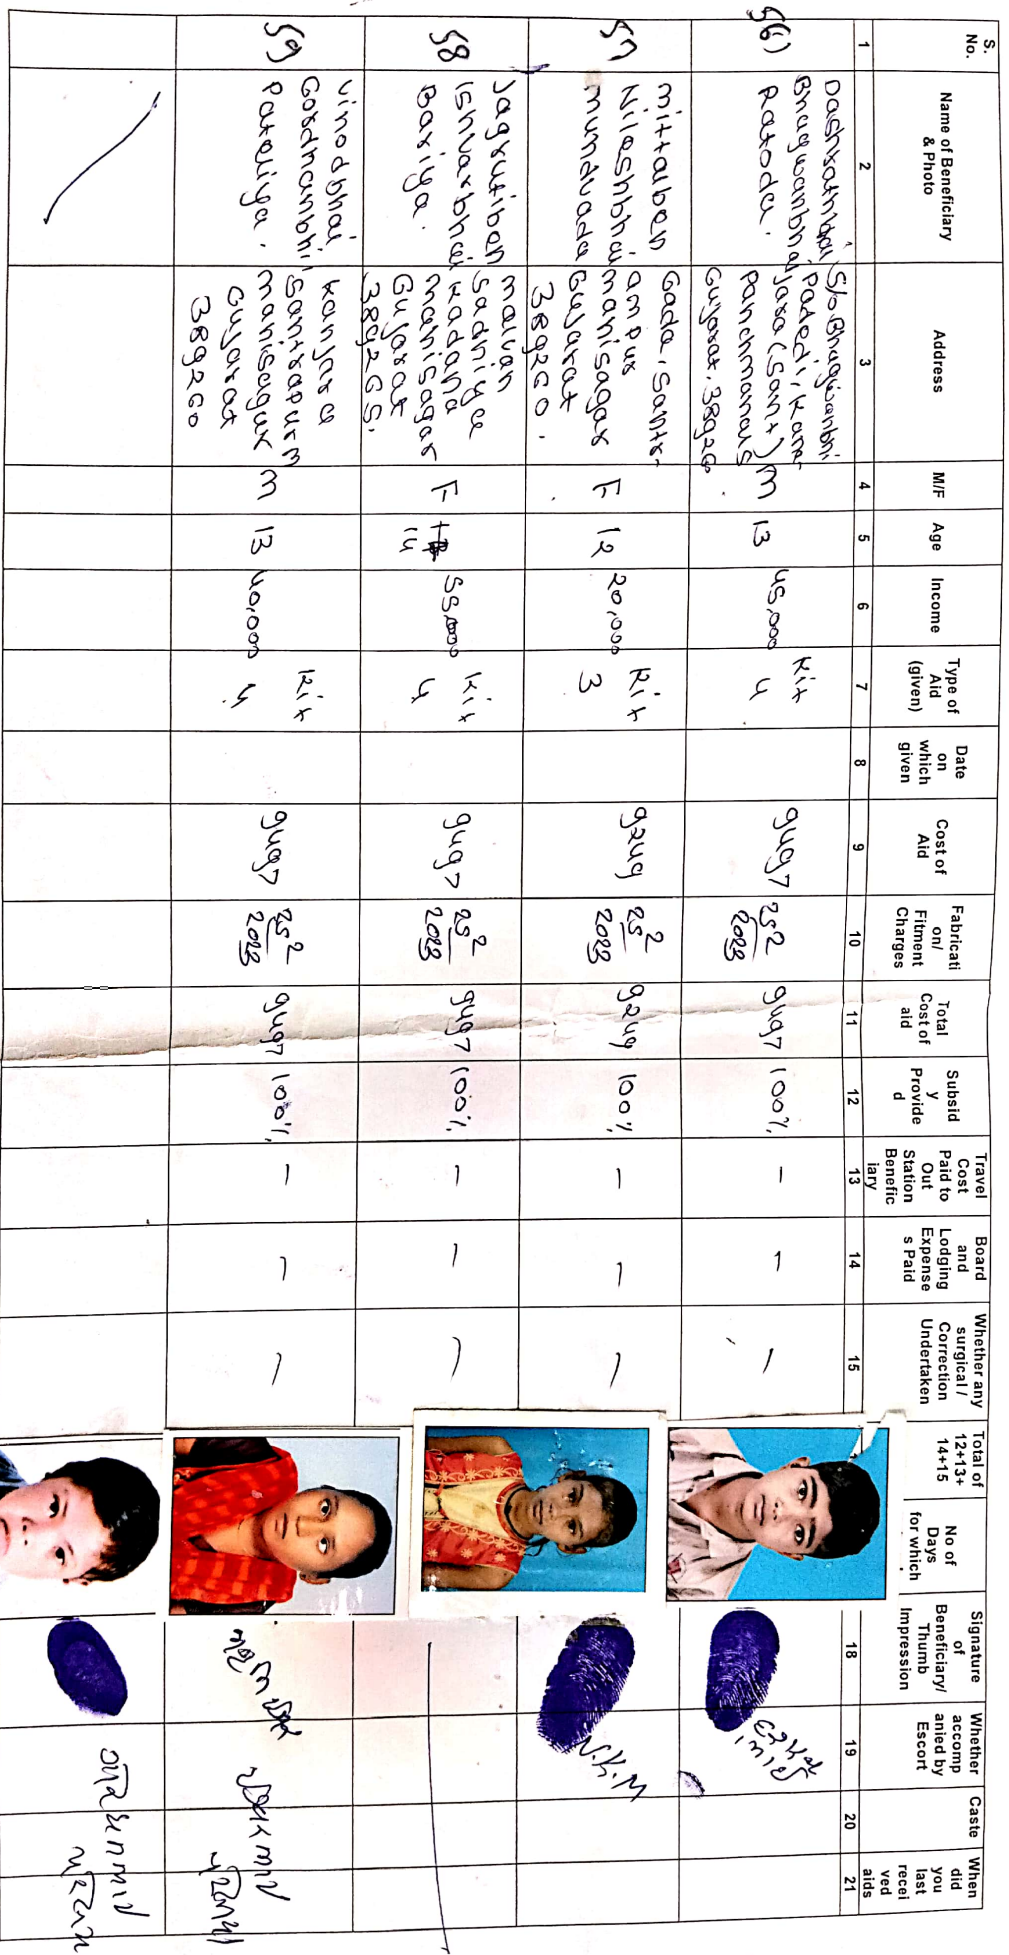 S. No.
Name of Beneficiary & Photo
Address
M/F
Age
Income
Type of Aid (given)
Date on which given
Cost of Aid
Fabricati on/ Fitment Charges
Total Cost of aid
Subsid y Provide d
Travel Cost Paid to Out Station Benefic iary
Board and Lodging Expense s Paid
Whether any surgical / Correction Undertaken
Total of 12+13+ 14+15
No of Days for which
Signature of Beneficiary/ Thumb Impression
Whether accomp anied by Escort
Caste
When did you last recei ved aids
1 2 3 4 5 6 7 8 9 10 11 12 13 14 15 18 19 20 21
56)
Dashrathbhai
Bhagwanbhai
Ratoda.
S/o Bhagwanbhi
Patedi, Kan-
Jara (Sant)
Panchmahals
Gujarat, 38926
M
13
45,000
Kit
4
9497
25 2
2023
9497
100%
–
–
–
57
Mittalben
Nileshbhai
Munduvada
Gada, Santr-
ampur
Manisagar
Gujarat
389260.
F
12
20,000
Kit
3
9249
25 2
2023
9249
100%
–
–
–
N.K.M
58
Jagrutiben
Ishvarbhai
Bariya.
Malvan
Sadniya
Kadana
Manisagar
Gujarat
389265.
F
14
55,000
Kit
4
9497
25 2
2023
9497
100%
–
–
–
59
Vinodbhai
Gordhanbhi
Pateliya.
Kanjara
Santrapurm
Manisagar
Gujarat
389260
M
13
40,000
Kit
4
9497
25 2
2023
9497
100%
–
–
–